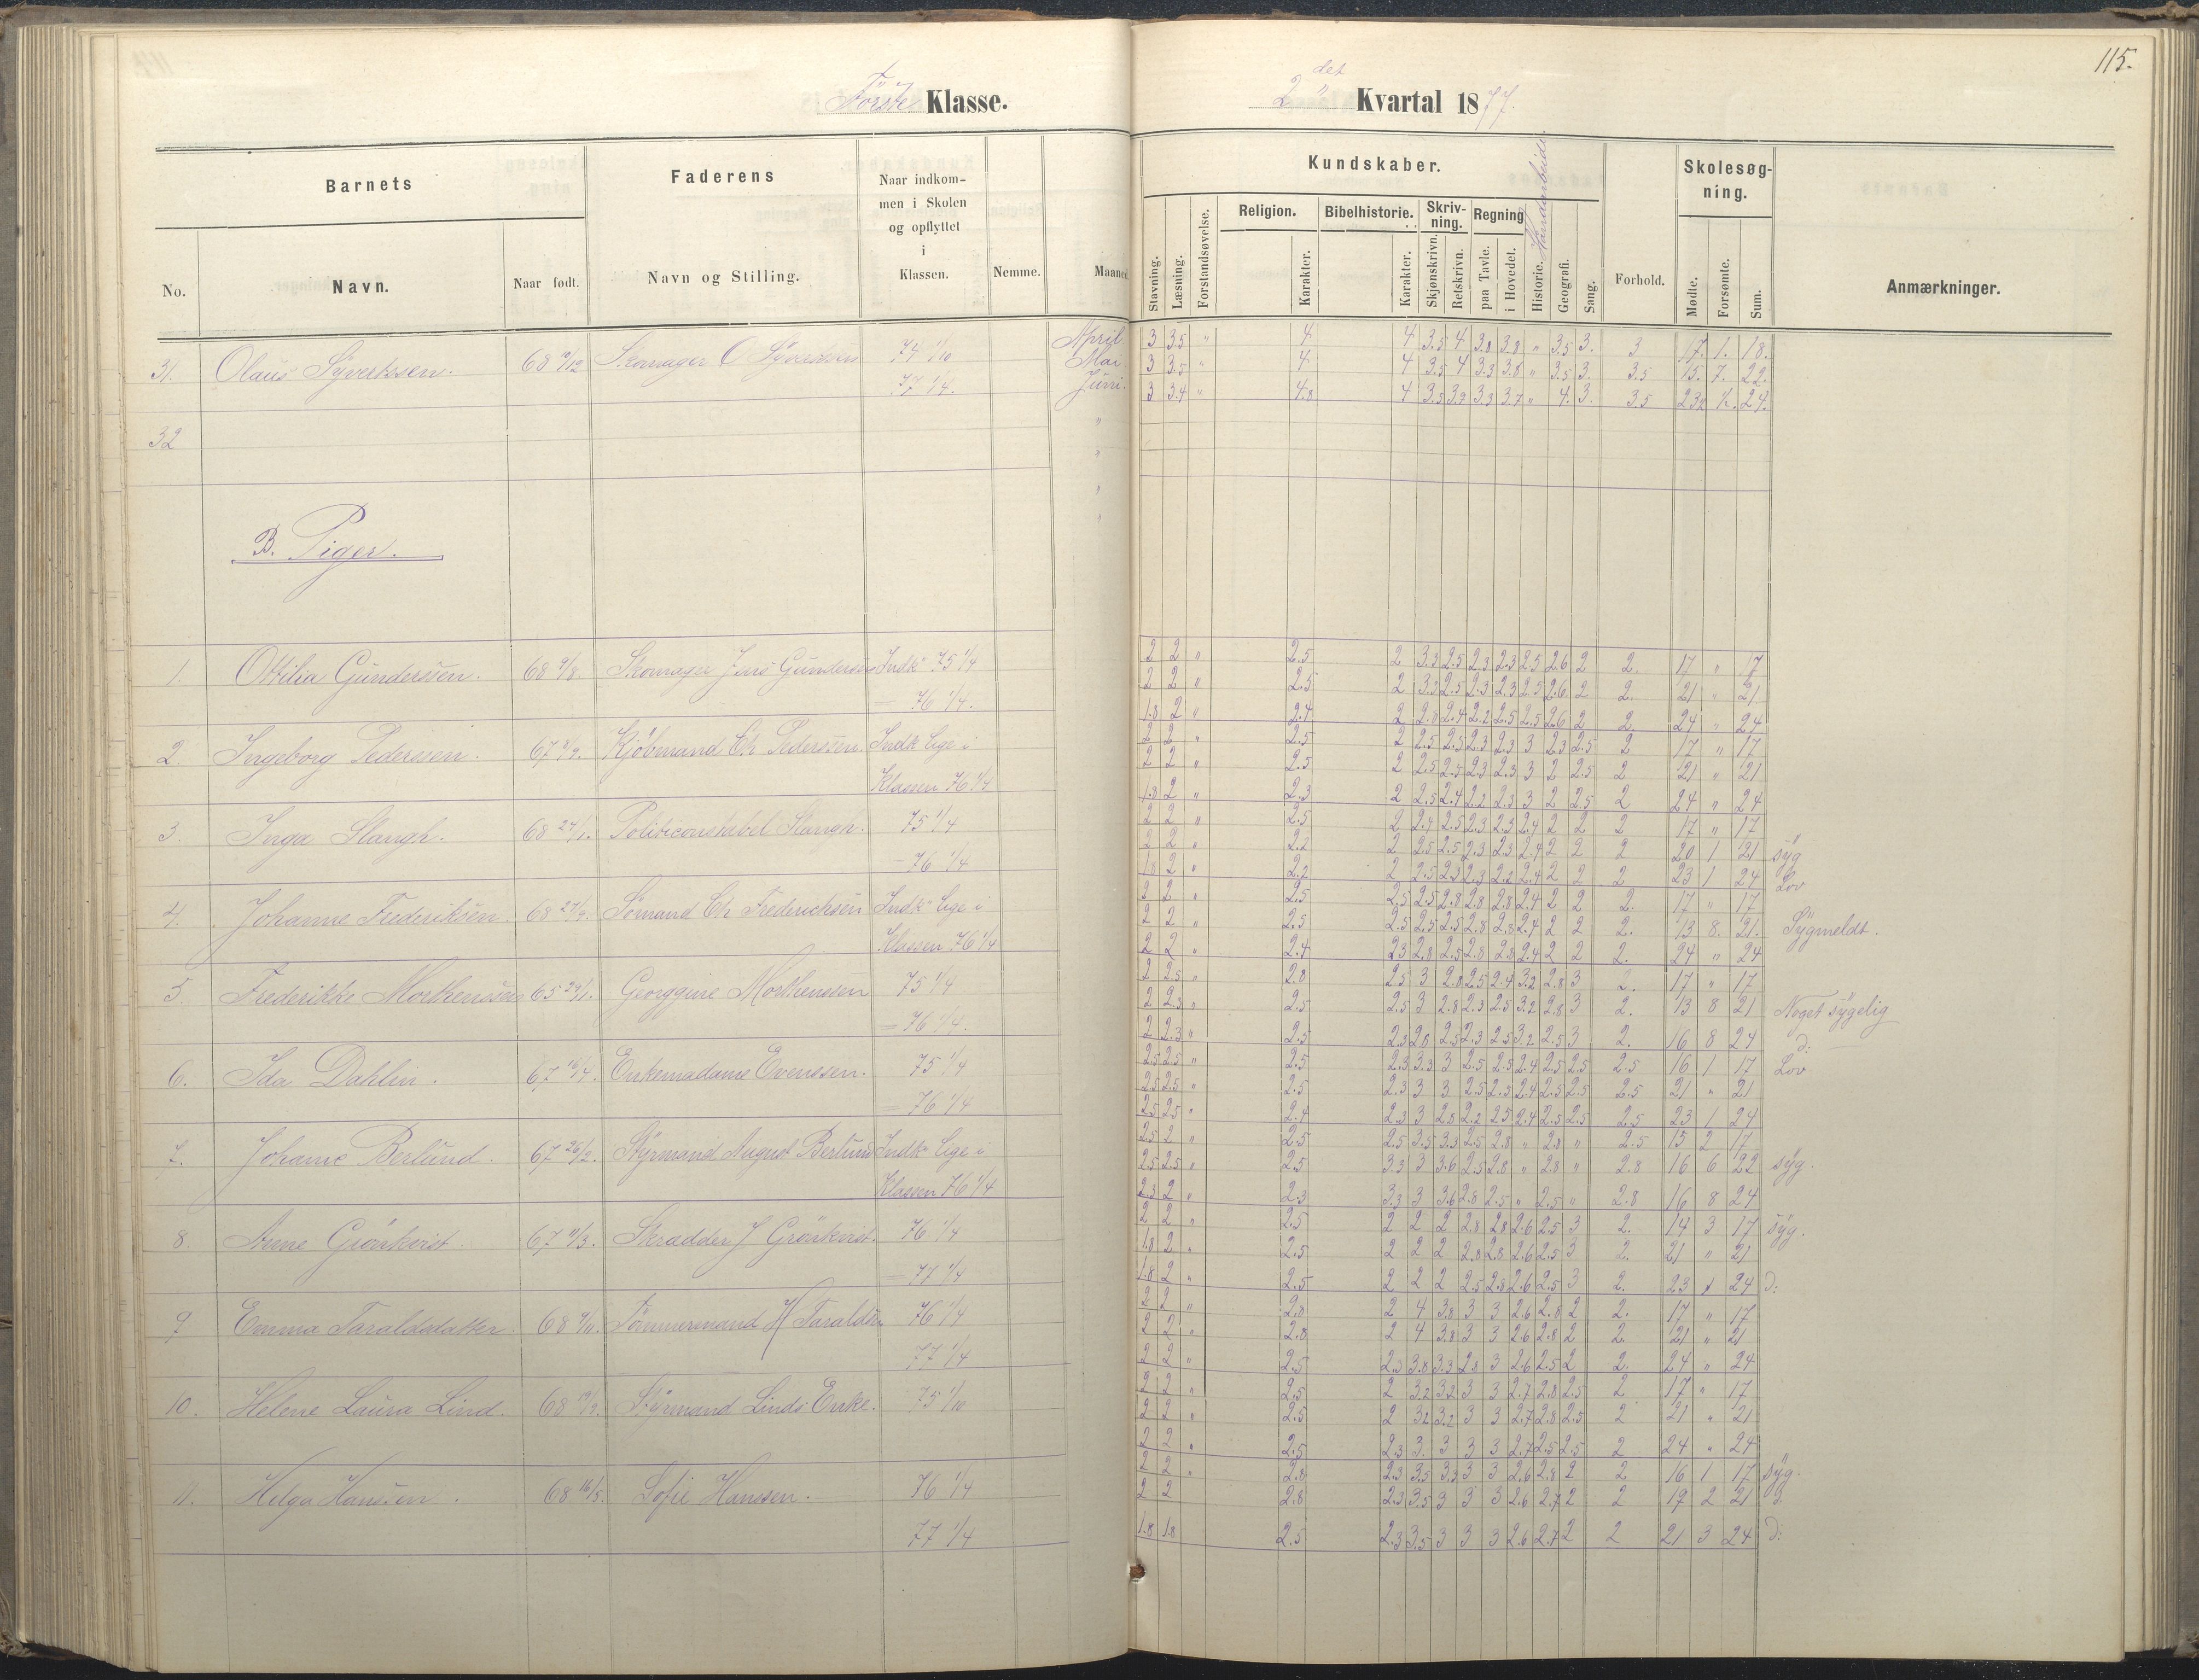 115.
Første Klasse.
2 det Kvartal 1877.
Barnets
Faderens
Naar indkommen i Skolen og opflyttet i Klassen.
Nemme.
Maaned
Kundskaber.
Haandarbeide
Forhold.
Skolesøgning.
Anmærkninger.
No.
Navn.
Naar født.
Navn og Stilling.
Stavning.
Læsning.
Forstandsøvelse.
Religion.
Karakter.
Bibelhistorie.
Karakter.
Skrivning.
Skjønskrivn.
Retskrivn.
Regning
paa Tavle.
i Hovedet.
Historie.
Geografi.
Sang.
Mødte.
Forsømte.
Sum.
31. Olaus Syvertsen. Skomager O Syvertsen 74 1/10 April 3 3.5 " 4. 4 3.5 4 3.8 3.8 " 3.5 3. 3 17. 1. 18.
77 1/4. Mai 3 3.5 " 4. 4 3.5 4 3.3 3.8 " 3.5 3. 3.5 15. 7. 22.
Juni. 3 3.4 " 4.8 4 3.5 3.9 3.3 3.7 " 4. 3. 3.5 24.
32
B. Piger.
1. Ottilia Gundersen. 68 9/8. Skomager Jens Gundersen Indk 75 1/4 2 2 " 2.5 2 3.3 2.5 2.3 2.3 2.5 2.6 2 2. 17 " 17
2 2 " 2.5 2 3.3 2.5 2.3 2.3 2.5 2.6 2 2. 21 " 21
76 1/4. 1.8 2 " 2.4 2 2.8 2.4 2.2 2.5 2.5 2.6 2 2. 24 " 24
2 Ingeborg Pedersen. Kjøbmand Ch Pedersen. Indk lige i 2 2 " 2.5 2 2.5 2.5 2.3 2.3 3 2.3 2.5 2 17 " 17
2 2 " 2.5 2 2.5 2.5 2.3 2.3 3 2 2.5 2 21 " 21
Klassen 76 1/4 1.8 2 " 2.3 2 2.5 2.4 2.2 2.3 3 2 2.5 2 24 " 24
3. Inga Stangh. 68 24/1. Politiconstabel Stangh. 75 1/4 2 2 " 2.5 2 2.7 2.5 2.3 2.3 2.4 2 2 2 17 " 17
2 2 " 2.2 2 2.5 2.5 2.3 2.3 2.4 2 2 2 20 1 21 syg
76 1/4 1.8 2 " 2.2 2 2.5 2.3 2.3 2.2 2.4 2 2 2 23 1 24 Lov
4. Johanne Frederiksen 68 27/9. Sømand Ch Frederichsen Indk lige i 2 2 " 2.5 2.5 2.5 2.8 2.8 2.8 2.4 2 2 2. 17 " 17
2 2 " 2.5 2.5 2.5 2.5 2.8 2.8 2.4 2 2 2. 13 8. 21. Sygmeldt.
Klassen 76 1/4 2 2 " 2.4 2.3 2.8 2.5 2.8 2.8 2.4 2 2 2. 24 " 24
5. Frederikke Morthensen 65 29/1. Georggine Morthensen 75 1/4 2 2.5 " 2.8 2.5 3 2.8 2.5 2.4 3.2 2.8 3 2. 17 " 17
2 2.3 " 2.5 2.5 3 2.8 2.3 2.5 3.2 2.8 3 2. 13 8 21 Noget sygelig
76 1/4. 2 2.3 " 2.5 2.3 2.8 2.5 2.3 2.5 3.2 2.5 3 2. 16 8 24 d:
6. Ida Dahlin. 67 16/4. Enkemadame Evensen. 75 1/4 2.5 2.5 " 2.5 2.3 3.3 3 2.5 2.5 2.4 2.5 2.5 2.5 16 1 17 Lov
2.5 2.5 " 2.5 2.3 3 3 2.5 2.5 2.4 2.5 2.5 2.5 21 " 21
76 1/4 2.5 2.5 " 2.4 2.3 3 2.8 2.2 2.5 2.4 2.5 2.5 2.5 23 1 24
7. Johanne Berlund. 67 26/2. Styrmand August Berlund Indk lige i 2.5 2 " 2.5 2.5 3.5 3.3 2.5 2.8 " 2.8 " 2.5 15 2 17
2.5 2.5 " 2.5 3.3 3 3.6 2.5 2.8 " 2.8 " 2.8 16 6 22 syg.
Klassen 76 1/4 2.3 2 " 2.3 3.3 3 3.6 2.8 2.5 " 2.5 " 2.8 16 8 24
8. Anne Grönkvist. 67 11/3. Skrædder J Grönkvist. 76 1/4 2 2 " 2.5 2 2 2 2.8 2.8 2.6 2.5 3 2. 14 3 17 syg.
1.8 2 " 2.5 2 2 2 2.8 2.8 2.6 2.5 3 2. 21 " 21
77 1/4 1.8 2 " 2.5 2 2 2 2.5 2.8 2.6 2.5 3 2. 23 1 24 d:
9 Emma Taraldsdatter. Tömmermand H Taraldsen 76 1/4 2 2 " 2.8 2 4 3.8 3 3 2.6 2.8 2 2. 17 " 17
2 2 " 2.8 2 4 3.8 3 3 2.6 2.8 2 2. 21 " 21
77 1/4 2 2 " 2.5 2.3 3.8 3.3 2.8 3 2.6 2.5 2 2. 24 " 24
10. Helene Laura Lind. Styrmand Linds Enke. 75 1/10 2 2 " 2.5 2 3.2 3.2 3 3 2.7 2.8 2.5 2 17 " 17
2 2 " 2.5 2 3.2 3.2 3 3 2.7 2.8 2.5 2 21 " 21
2 2 " 2.5 2.3 3. 3 3 3 2.7 2.5 2.5 2 24 " 24
11. Helga Hansen. 68 16/5. Sofie Hanssen. 76 1/4 2 2 " 2.8 2.3 3.5 3.3 3 3 2.6 2.8 2 2 16 1 17 syg.
2 2 2.8 2.3 3.5 3 3 3 2.6 2.7 2 2 19 2 21 d.
77 1/4 1.8 1.8 2.5 2.3 3.5 3 3 3 2.6 2.7 2 2 21 3 24 d: